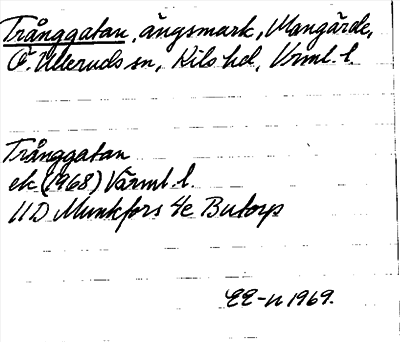 Trånggatan, ängsmark, Mangärde,
Ö. Ulleruds sn, Kils hd, Vrml. l.
Trånggatan
ek (1968) Värml. l.
11D Munkfors 4e Butorp
EE-n 1969.